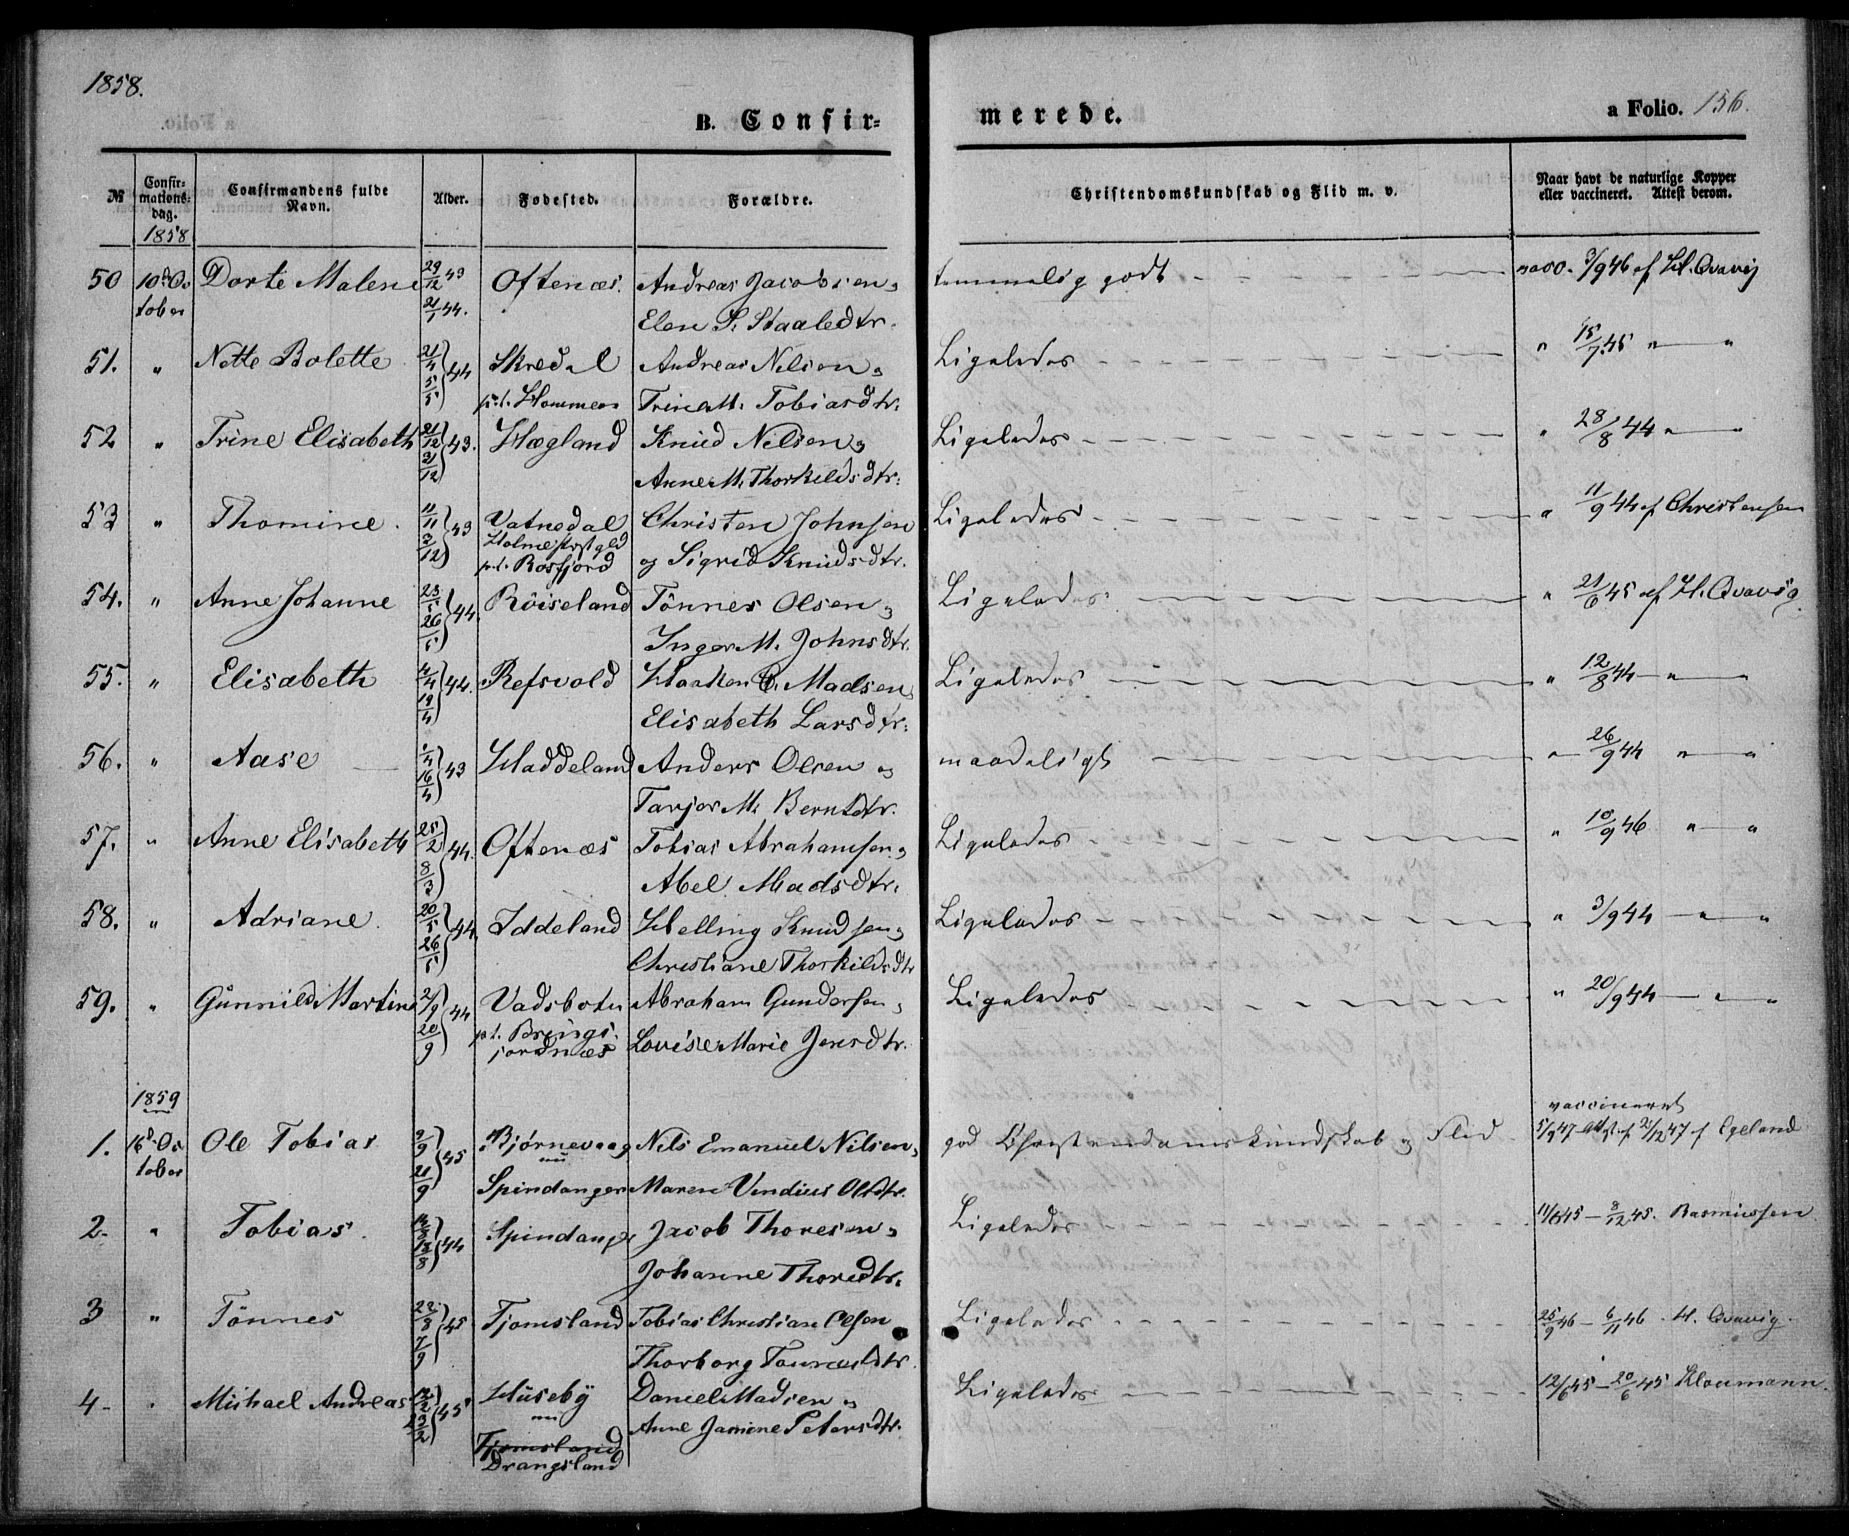 1858.
B. Confir=
merede.
a Folio. 156.
№ Confir-mations-dag. Confirmandens fulde Navn. Alder. Fødested. Forældre. Christendomskundskab og Flid m. v. Naar havt de naturlige Kopper eller vaccineret. Attest derom.
1858
50 10d Oc Dorte Malene 29/12 43 Oftenæs. Andreas Jacobsen, temmelig godt vacc. 3/9 46 af H. Qvavig
tober 21/1 44. Elen S. Staalesdtr.
51. " Nette Bolette 21/4 44 Skredal Andreas Nilsen, Ligeledes " 15/7 45 " "
5/5 p.t. Hommen Trine M. Tobiasdtr.
52 " Trine Elisabeth 21/12 43. Hægland Knud Nilsen, Ligeledes " 28/8 44 " "
31/12 Anne M. Thorkildsdtr.
53 " Thomine 11/11 43 Vatnedal Christen Johnsen Ligeledes " 11/9 44 af Christensen
3/12 Holme Præstgld
p.t. Rosfjord og Sigrid Knudsdtr.
54. " Anne Johanne 23/5 44. Röiseland Tönnes Olsen, Ligeledes " 21/6 45 af H. Qvavig
26/5 Inger M. Johnsdtr.
55. " Elisabeth 4/4 44. Refsvold Haaken C. Madsen, Ligeledes " 12/8 44 " "
19/4 Elisabeth Larsdtr.
56. " Aase 43 Haddeland Anders Olsen og maadeligt " 26/9 44 " "
16/4 Tarjer M. Berntdtr.
57. " Anne Elisabeth 25/2 44. Oftenæs Tobias Abrahamsen, Ligeledes " 10/9 46 " "
8/3 Abel Madsdtr.
58. " Adriane 20/5 44. Iddeland Helling Knudsen, Ligeledes " 3/9 44 " "
26/5 Christiane Thorkildsdtr
59. " Gunnild Martine 2/9 44 Vadsbotn Abraham Gundersen, Ligeledes " 20/9 44 " "
20/9 p.t. Brings-
jordnæs Lovise Marie Jensdtr.
1859
vaccineret
1. 16d Oc Ole Tobias 9/9 45 Bjørnevaag Nils Emanuel Nilsen, god Christendomskundskab og Flid 5/9 47 Att. af 21/12 47 f Egeland
tober 21/9 nu
Spindanger Maren Vendius Olsdtr.
2. " Tobias 44 Spindanger Jacob Thoresen, Ligeledes 11/6 45 - 8/12 45. Rasmussen
13/8 Johanne Thoresdtr.
3 " Tönnes 22/8 45 Fjomsland Tobias Christian Olsen Ligeledes 25/9 46 - 6/11 46 H. Qvavig.
7/9 Thorborg Tönnesdtr.
4 " Michael Andreas 12/2 45 Huseby Daniel Madsen, Ligeledes 12/6 45 - 20/6 45 Kloumann.
23/2 nu Anne Jamine Petersdtr.
Fjomsland
Drangsland